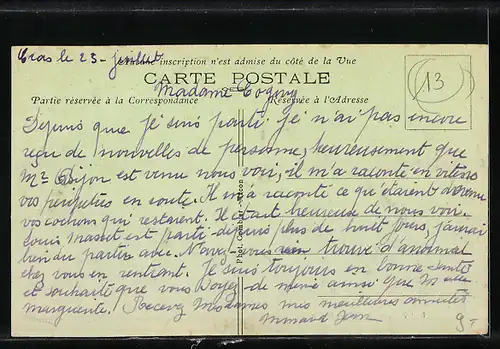 Cras le 23 - juillet
Aucune inscription n'est admise du côté de la Vue
CARTE POSTALE
13
Madame Cogny
Partie réservée à la Correspondance
Réservée à l'Adresse
Depuis que je suis parti je n'ai pas encore
reçu de nouvelles de personne, heureusement que
Mr Dijon est venu nous voir, il m'a raconté en vitesse
vos péripéties en route. Il m'a raconté ce qu'étaient devenu
vos cochons qui restèrent. Il était heureuse de nous voir.
Louis Masset est parti depuis plus de huit jours, j'aurai
bien du partir avec. N'avez-vous rien trouvé d'anormal
chez vous en rentrant. Je suis toujours en bonne santé
et souhaite que vous soyez de même ainsi que
marguerite. Recevez mesdames mes meilleures amitiés
Jean
9 -